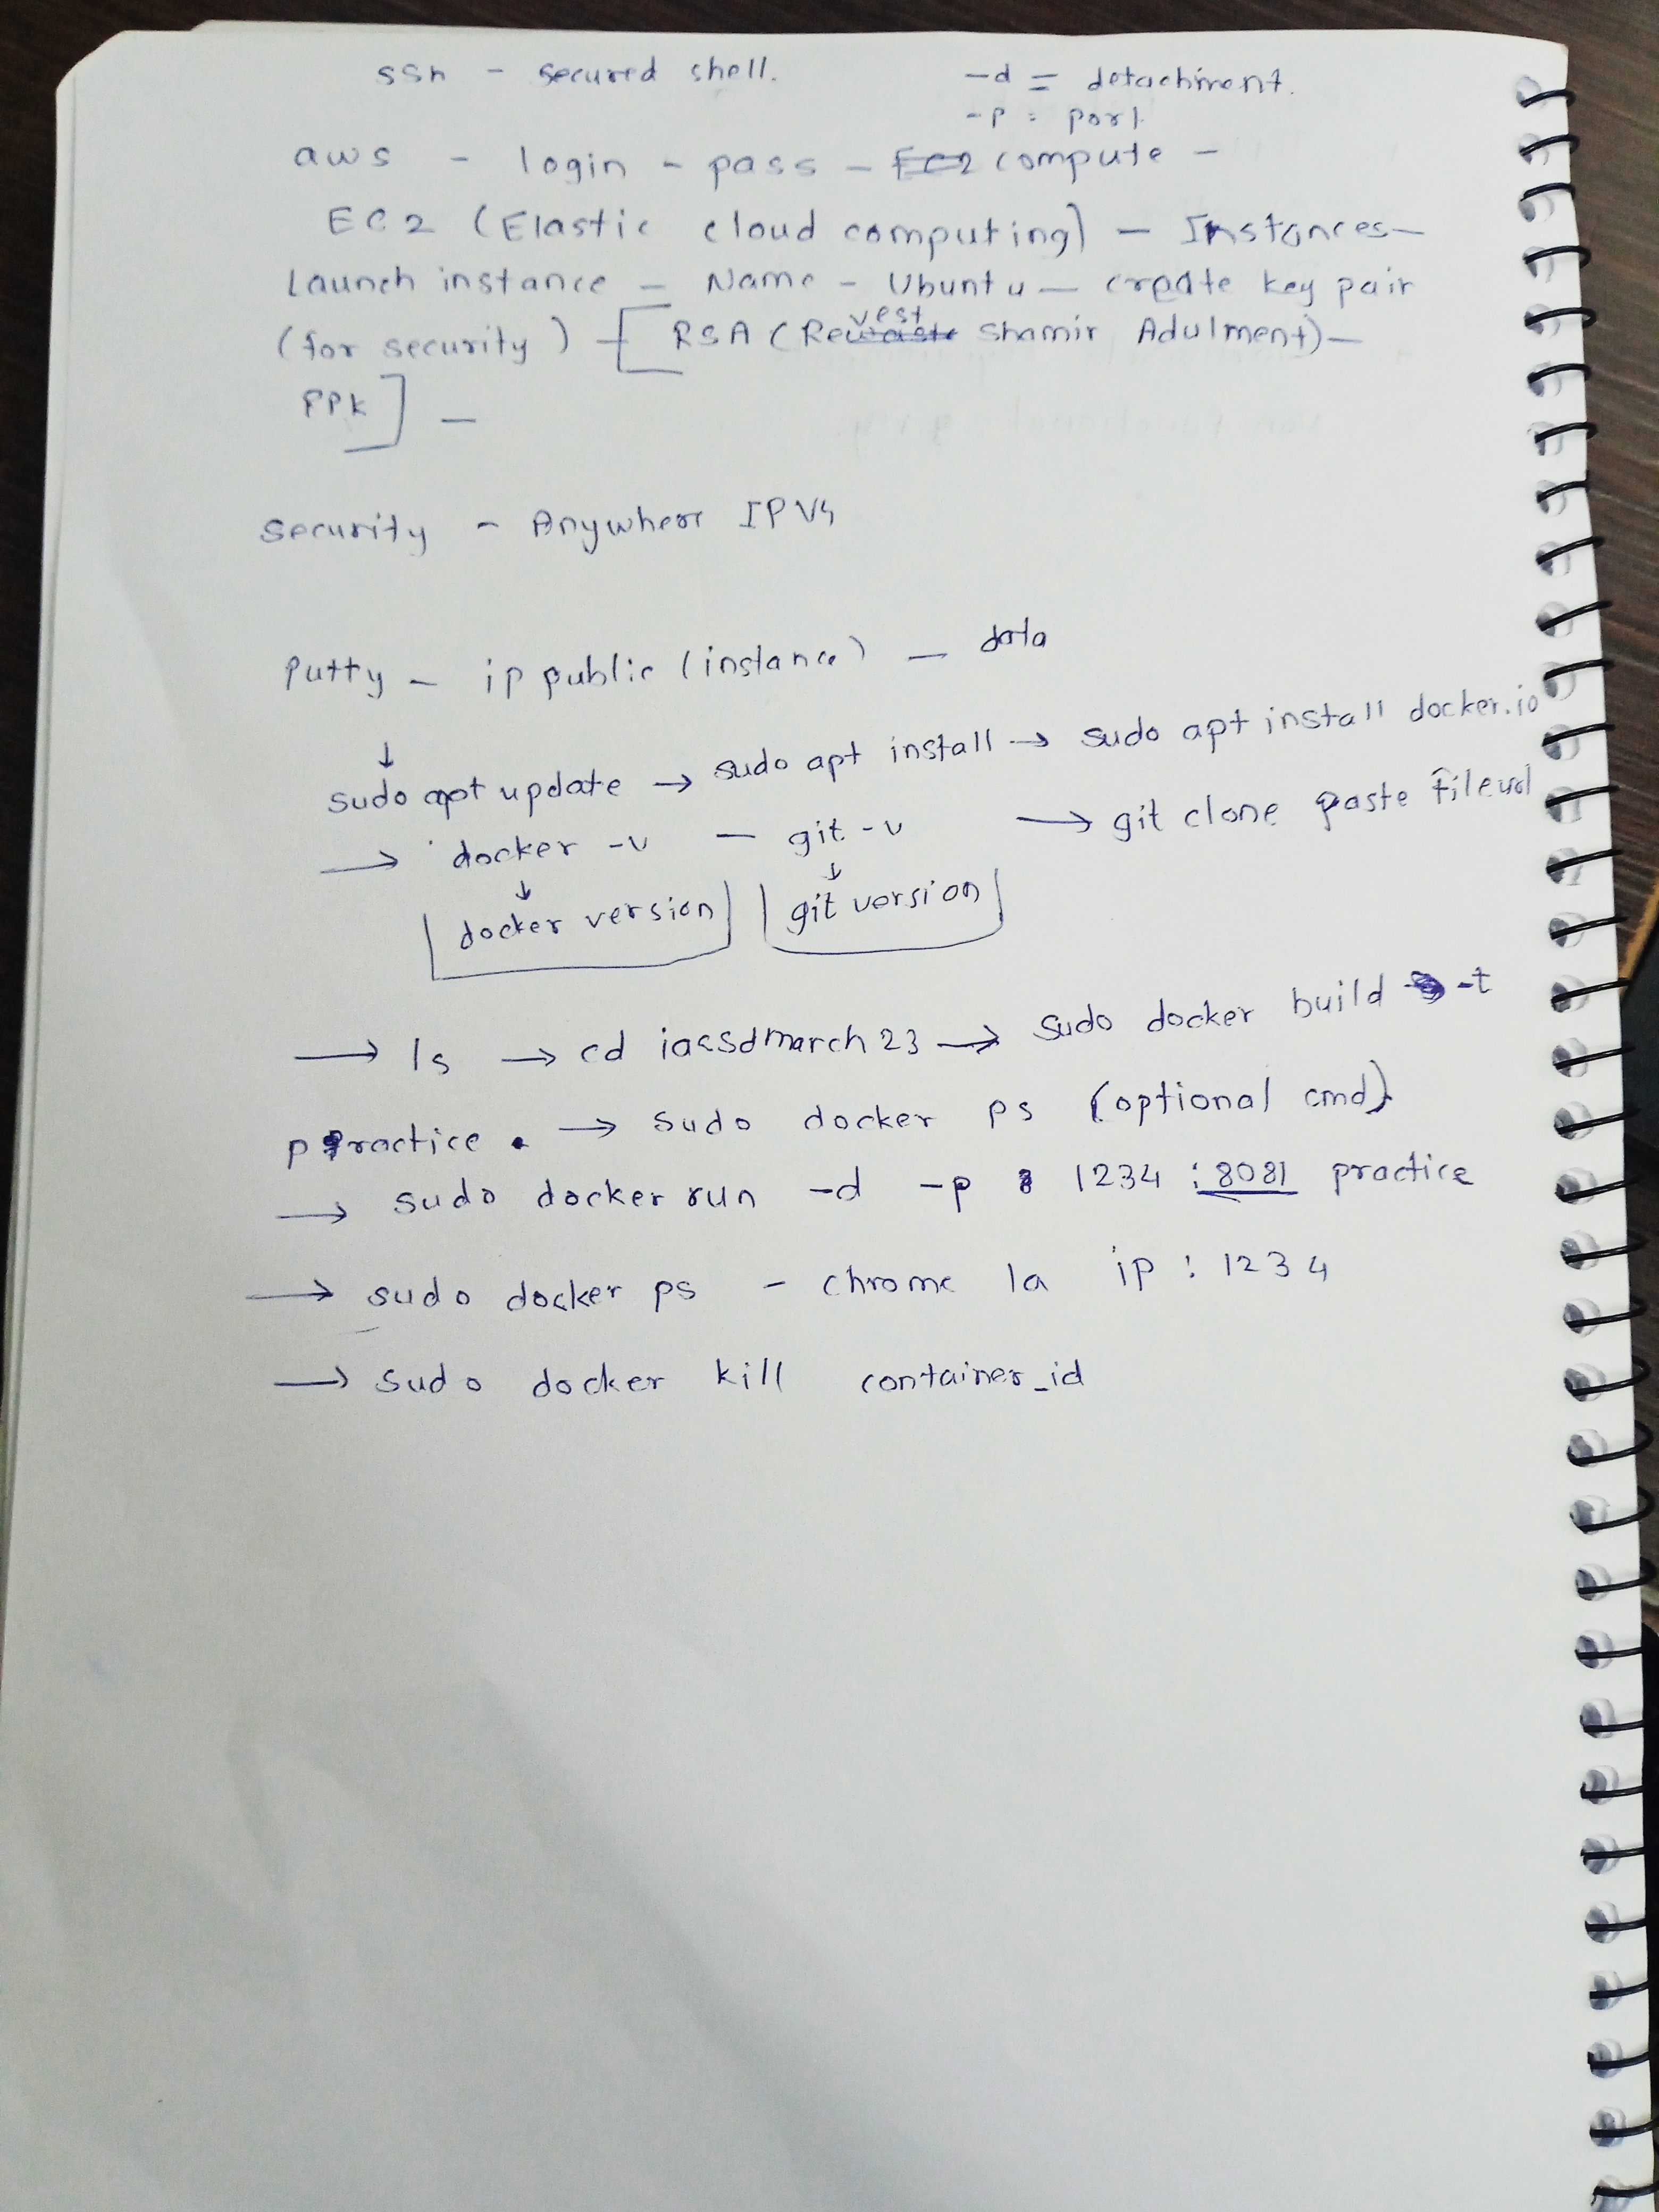 ssh - secured shell.
-d = detachment.
-p : port
aws - login - pass - compute -
EC2 (Elastic cloud computing) - Instances -
Launch instance - Name - Ubuntu - create key pair
(for security) - [ RSA (Revest Shamir Adulment) -
PPK ] -
Security - Anywhere IPV4
Putty - ip public (instance) - data
↓
sudo apt update → sudo apt install → sudo apt install docker.io
→ docker -v - git -v → git clone paste file url
↓ ↓
[docker version] [git version]
→ ls → cd iacsdmarch23 → sudo docker build -t
practice . → sudo docker ps (optional cmd)
→ sudo docker run -d -p 1234 :8081 practice
→ sudo docker ps - chrome la ip : 1234
→ sudo docker kill container_id